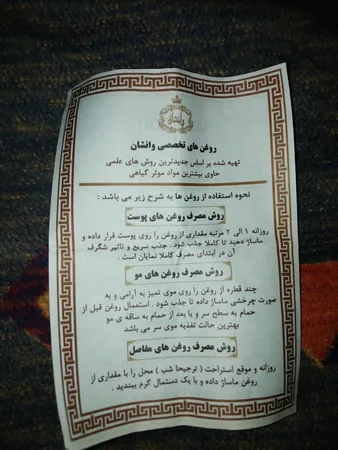 روغن های تخصصی وانشان
تهیه شده بر اساس جدیدترین روش های علمی
حاوی بیشترین مواد موثر گیاهی
نحوه استفاده از روغن ها به شرح زیر می باشد :
روش مصرف روغن های پوست
روزانه ۱ الی ۲ مرتبه مقداری از روغن را روی پوست قرار داده و
ماساژ دهید تا کاملا جذب شود . جذب سریع و تاثیر شگرف
آن در ابتدای مصرف کاملا نمایان است .
روش مصرف روغن های مو
چند قطره از روغن را روی موی تمیز به آرامی و به
صورت چرخشی ماساژ داده تا جذب شود . استعمال روغن قبل از
حمام به سطح سر و یا بعد از حمام به ساقه ی مو
بهترین حالت تغذیه موی سر می باشد
روش مصرف روغن های مفاصل
روزانه و موقع استراحت ( ترجیحا شب ) محل را با مقداری از
روغن ماساژ داده و با یک دستمال گرم ببندید .